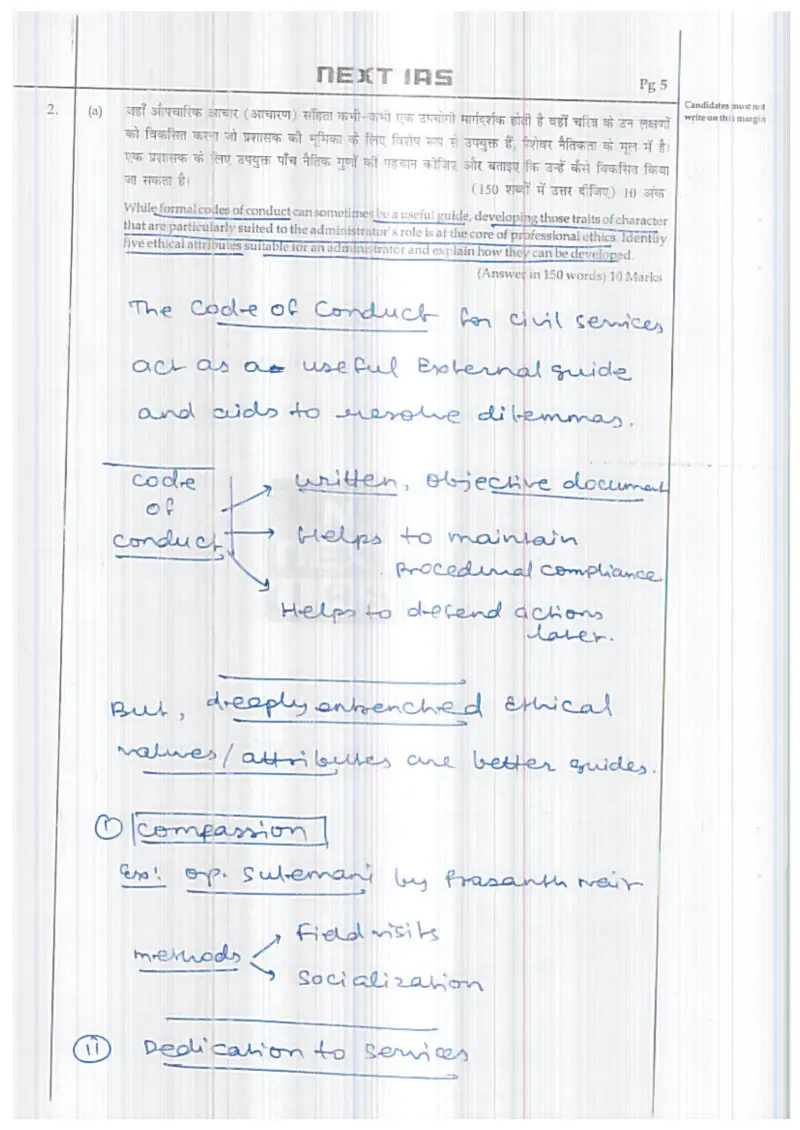 NEXT IAS
Pg 5
Candidates must not
write on this margin
2. (a) जहाँ औपचारिक आचार (आचारण) संहिता कभी-कभी एक उपयोगी मार्गदर्शक होती है वहीं चरित्र के उन लक्षणों
को विकसित करना जो प्रशासक की भूमिका के लिए विशेष रूप से उपयुक्त हैं, पेशेवर नैतिकता के मूल में है।
एक प्रशासक के लिए उपयुक्त पाँच नैतिक गुणों की पहचान कीजिए और बताइए कि उन्हें कैसे विकसित किया
जा सकता है।
(150 शब्दों में उत्तर दीजिए) 10 अंक
While formal codes of conduct can sometimes be a useful guide, developing those traits of character
that are particularly suited to the administrator's role is at the core of professional ethics. Identify
five ethical attributes suitable for an administrator and explain how they can be developed.
(Answer in 150 words) 10 Marks
The Code of Conduct for civil services
act as a useful External guide
and aids to resolve dilemmas.
code
of
conduct
→ written, objective document
→ Helps to maintain
procedural compliance
Helps to defend actions
later.
But, deeply entrenched Ethical
values/attributes are better guides.
(i) Compassion
Ex: op. Sulemani by Prasanth Nair
methods
Field visits
Socialization
(ii) Dedication to services